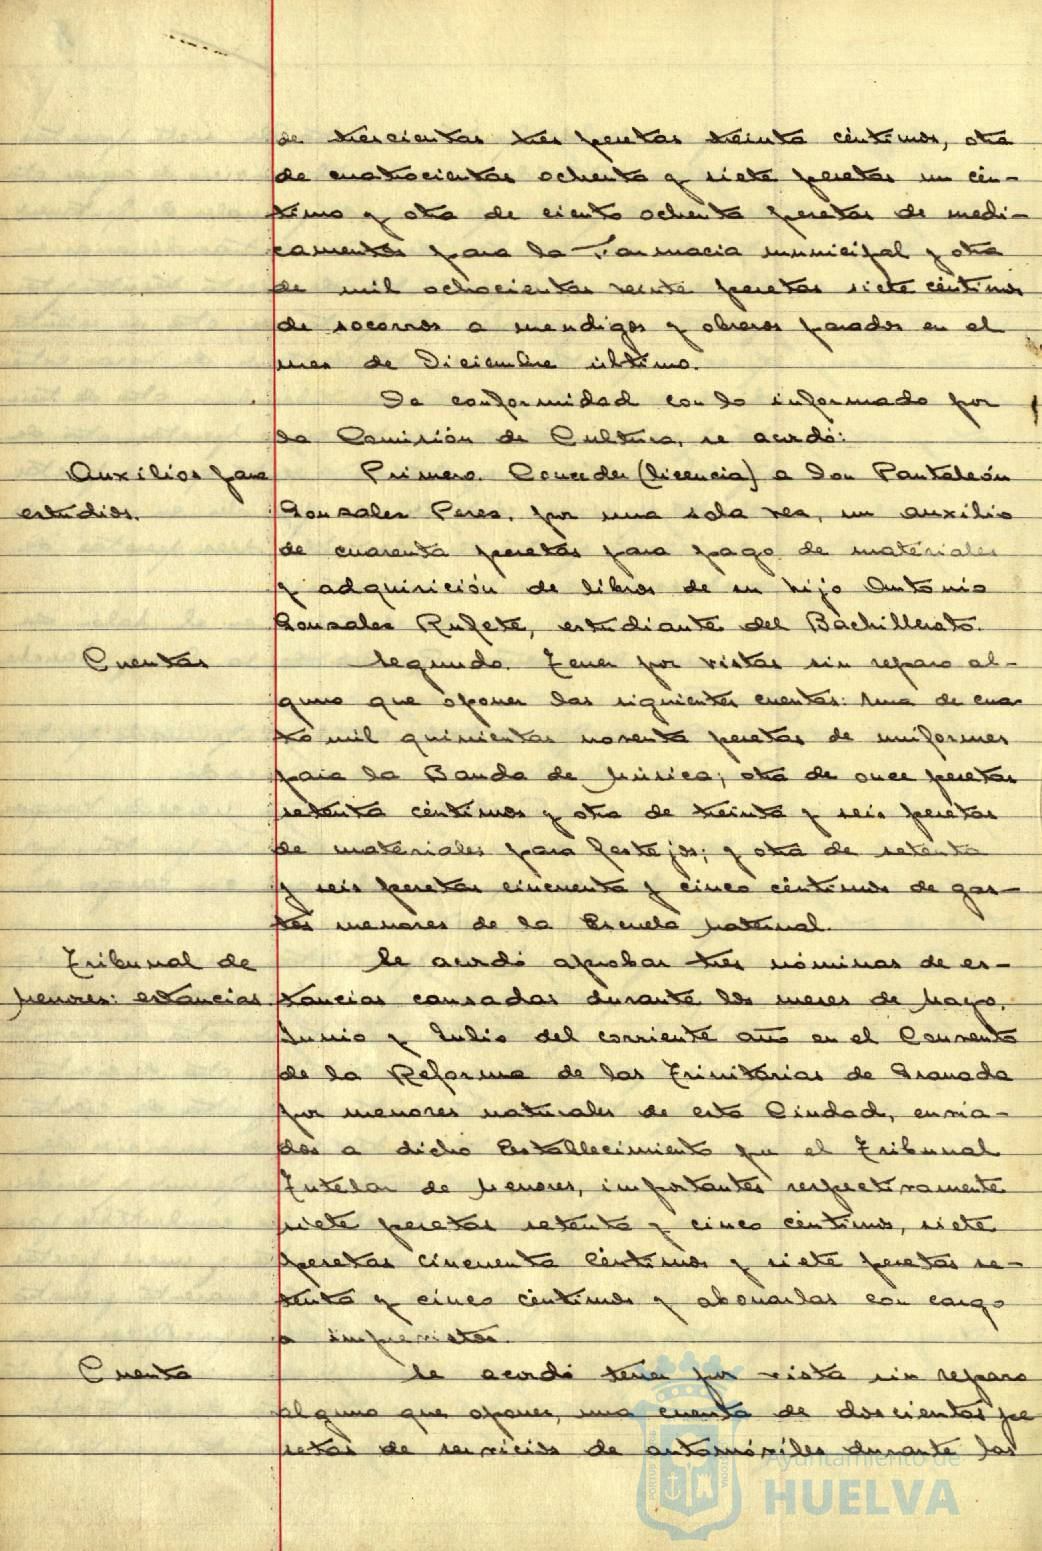 de trescientas tres pesetas treinta céntimos, otra
de cuatrocientas ochenta y siete pesetas un cén-
timo y otra de ciento ochenta pesetas de medi-
camentos para la Farmacia municipal y otra
de mil ochocientas veinte pesetas siete céntimos
de socorros a mendigos y obreros parados en el
mes de Diciembre último.
De conformidad con lo informado por
la Comisión de Cultura, se acordó:
Auxilios para
estudios.
Primero. Conceder (licencia) a Don Pantaleón
Gonzalez Perez, por una sola vez, un auxilio
de cuarenta pesetas para pago de materiales
y adquisición de libros de su hijo Antonio
Gonzalez Rufete, estudiante del Bachillerato.
Cuentas
Segundo. Tener por vistas sin reparo al-
guno que oponer las siguientes cuentas: Una de cua-
tro mil quinientas noventa pesetas de uniformes
para la Banda de Música; otra de once pesetas
setenta céntimos y otra de treinta y seis pesetas
de materiales para festejos; y otra de setenta
y seis pesetas cincuenta y cinco céntimos de gas-
tos menores de la Escuela Maternal.
Tribunal de
Menores: estancias
Se acordó aprobar tres nóminas de es-
tancias causadas durante los meses de Mayo,
Junio y Julio del corriente año en el Convento
de la Reforma de las Trinitarias de Granada
por menores naturales de esta Ciudad, envia-
dos a dicho Establecimiento por el Tribunal
Tutelar de Menores, importantes respectivamente
siete pesetas setenta y cinco céntimos, siete
pesetas cincuenta céntimos y siete pesetas se-
tenta y cinco céntimos y abonarlas con cargo
a imprevistos.
Cuenta
Se acordó tener por vista sin reparo
alguno que oponer, una cuenta de doscientas pe
setas de servicios de automóviles durante los
Ayuntamiento de
HUELVA